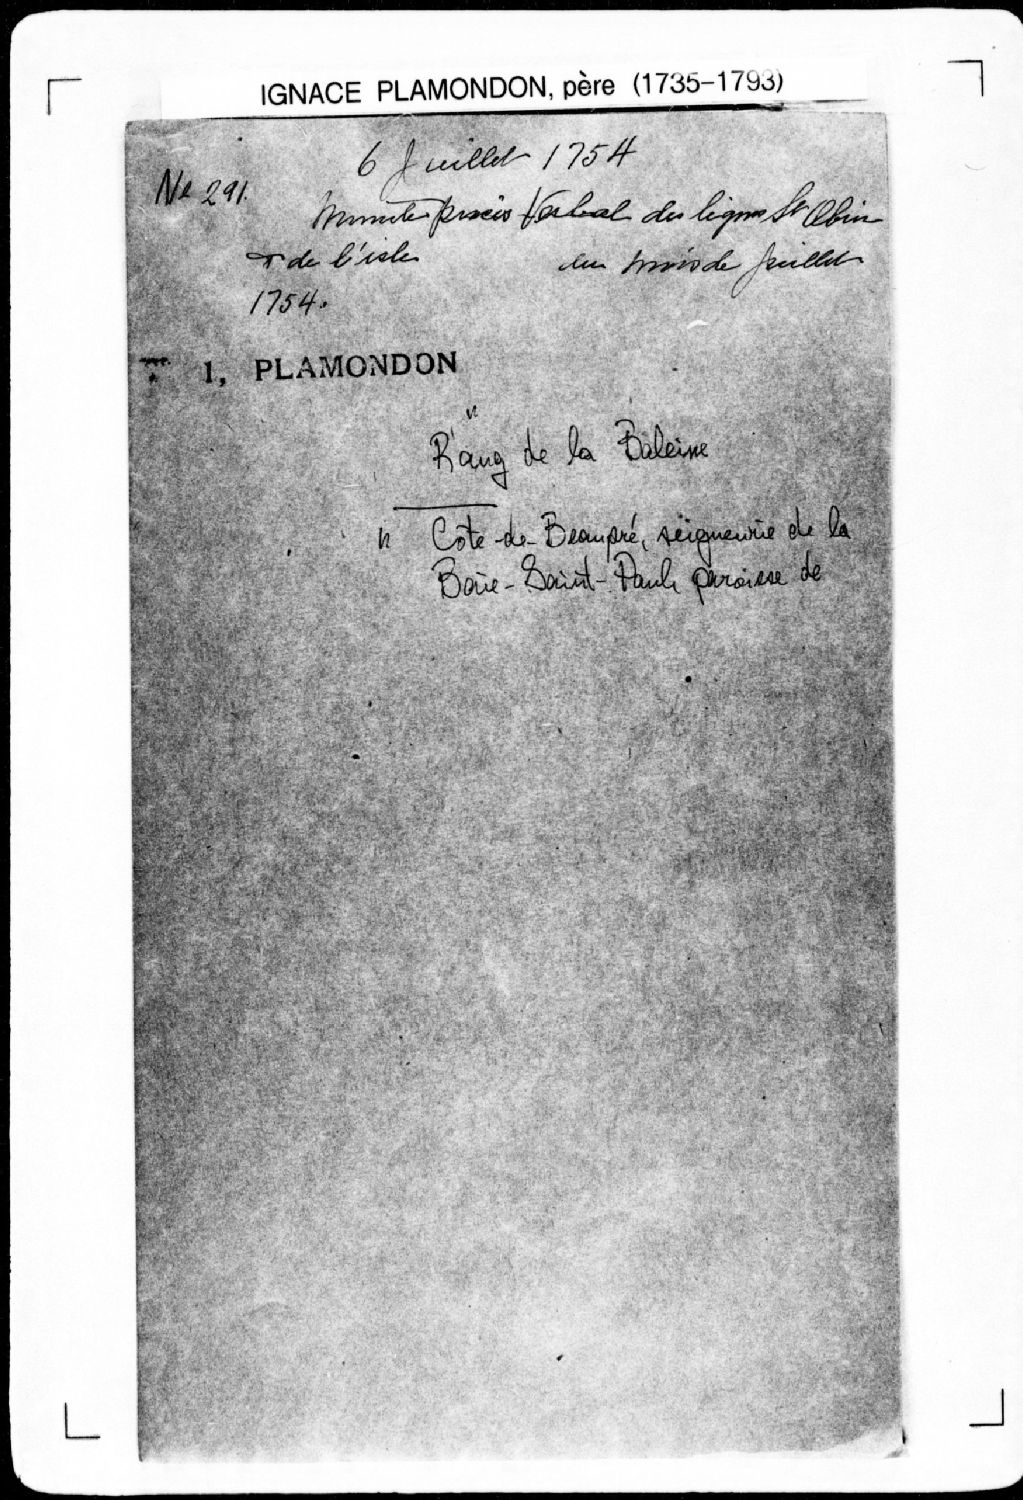 IGNACE PLAMONDON, père (1735-1793)
6 Juillet 1754
No 291.
Minute procès Verbal des lignes St Obin
& de l'isle du mois de Juillet
1754.
1, PLAMONDON
" Rang de la Baleine
" Côte-de-Beaupré, seigneurie de la
Baie-Saint-Paul, paroisse de